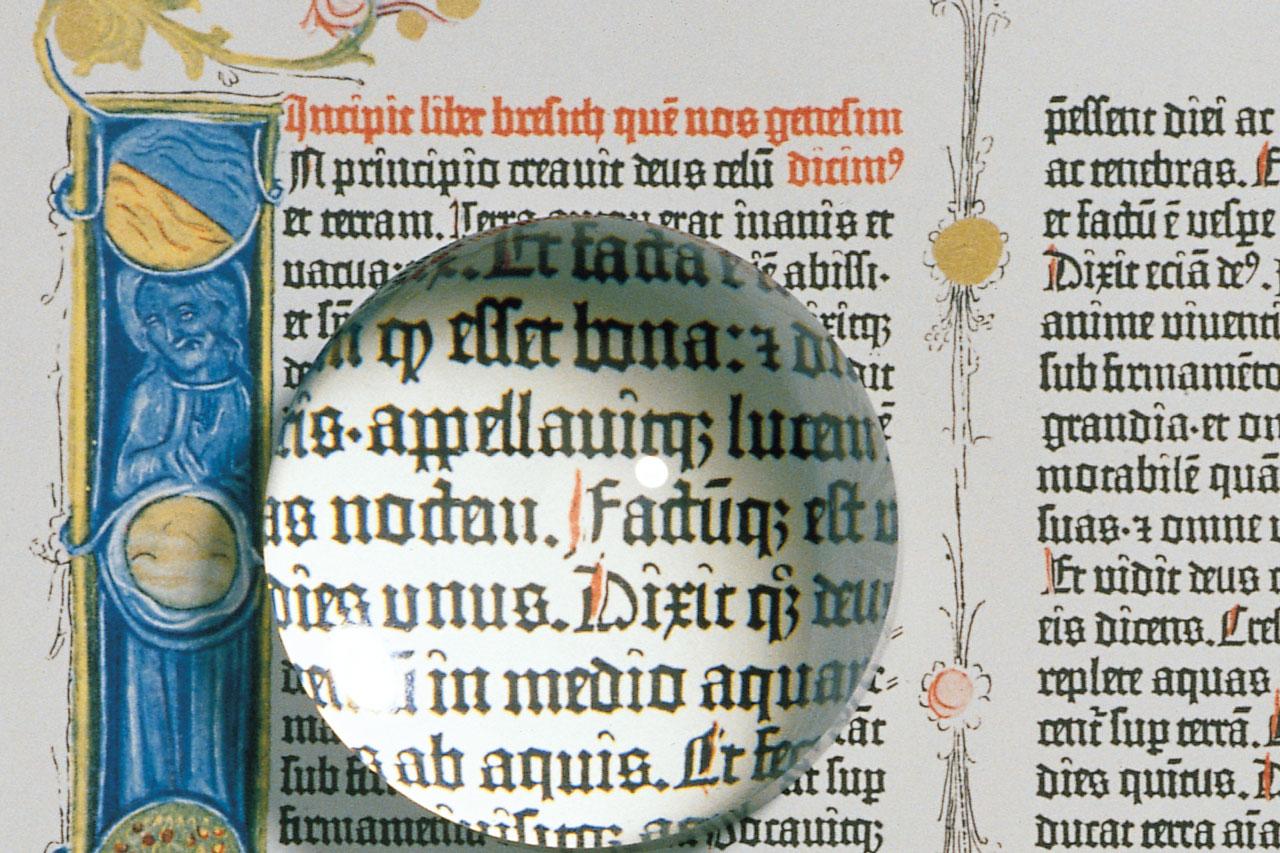 Incipit liber bresith quē nos genesim
IN principio creauit deus celū dicimꝰ
et terram. Terra autem erat inanis et
vacua: abissi·
et
Et facta
ꝙ esset bona: ⁊
appellauitqꝫ lucem
noctem. Factūqꝫ est
dies vnus. Dixit qꝫ deu
in medio aquar
ab aquis. Et fec
sub sup
firmamentū uocauitqꝫ
p̄essent diei ac
ac tenebras.
et factū ē vespe
Dixit eciā deꝰ.
anime viuenti
sub firmamēto
grandia·et om
morabilē quā
suas·⁊ omne
Et vidit deus
eis dicens. Cre
replete aquas
cent̄ sup terrā.
dies quītus.
ducat terra aīa